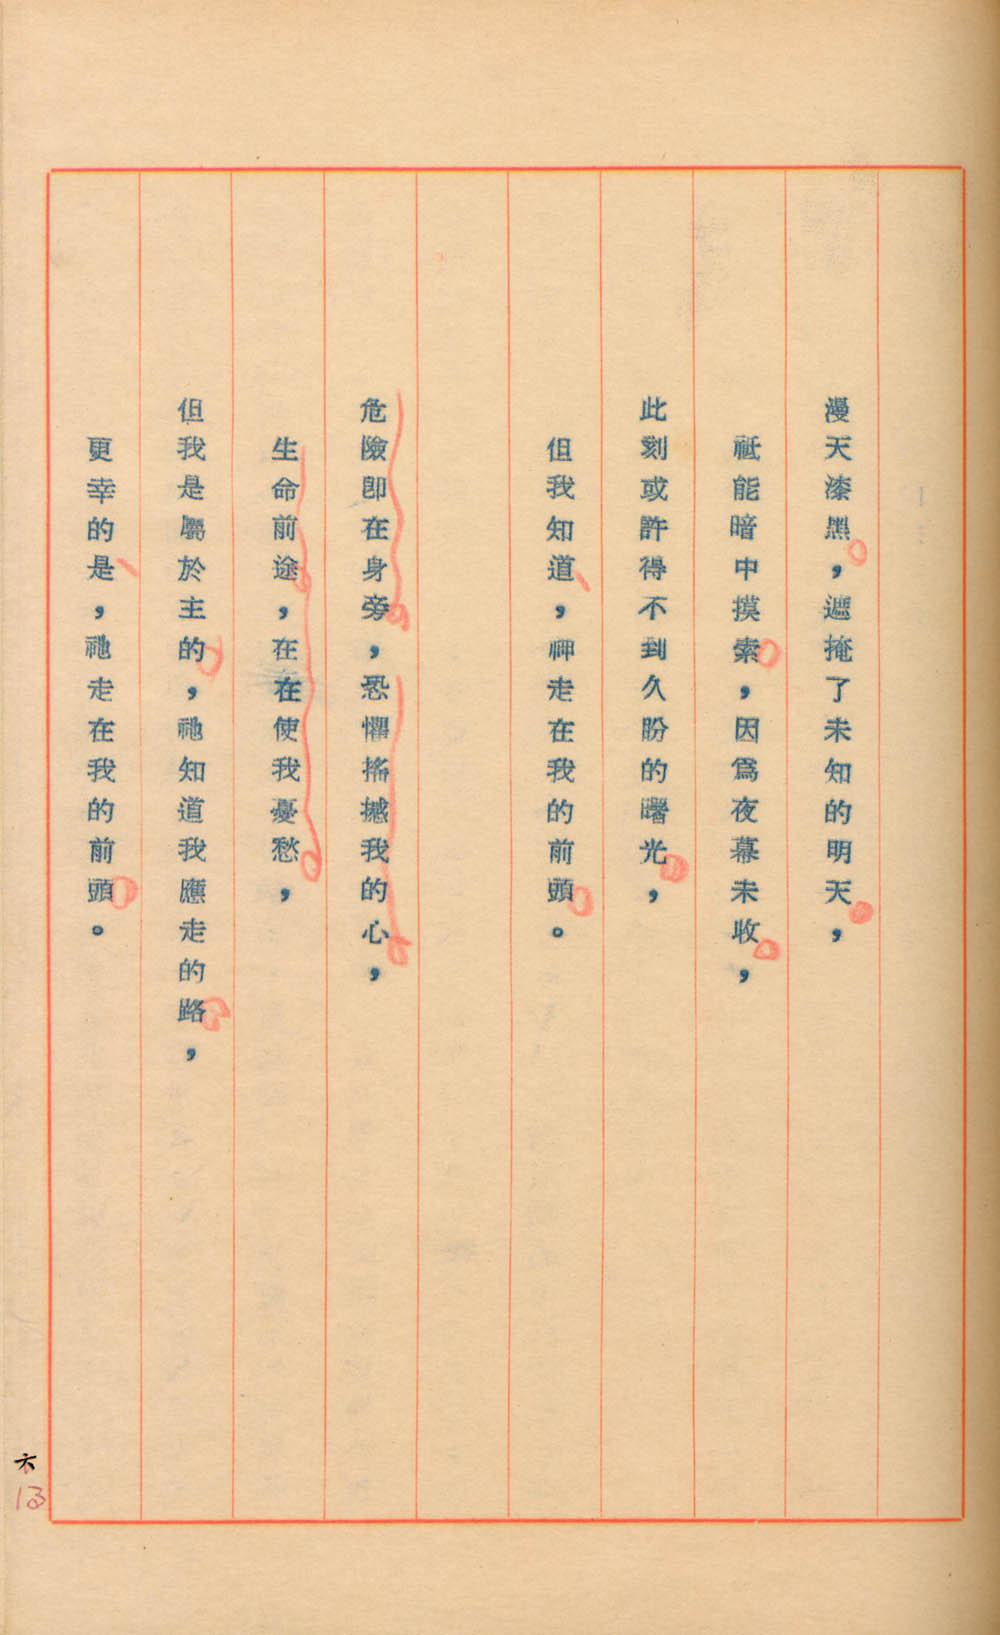 漫天漆黑，遮掩了未知的明天，
祗能暗中摸索，因爲夜幕未收，
此刻或許得不到久盼的曙光，
但我知道，神走在我的前頭。
危險卽在身旁，恐懼搖撼我的心，
生命前途，在在使我憂愁，
但我是屬於主的，祂知道我應走的路，
更幸的是，祂走在我的前頭。
六
13